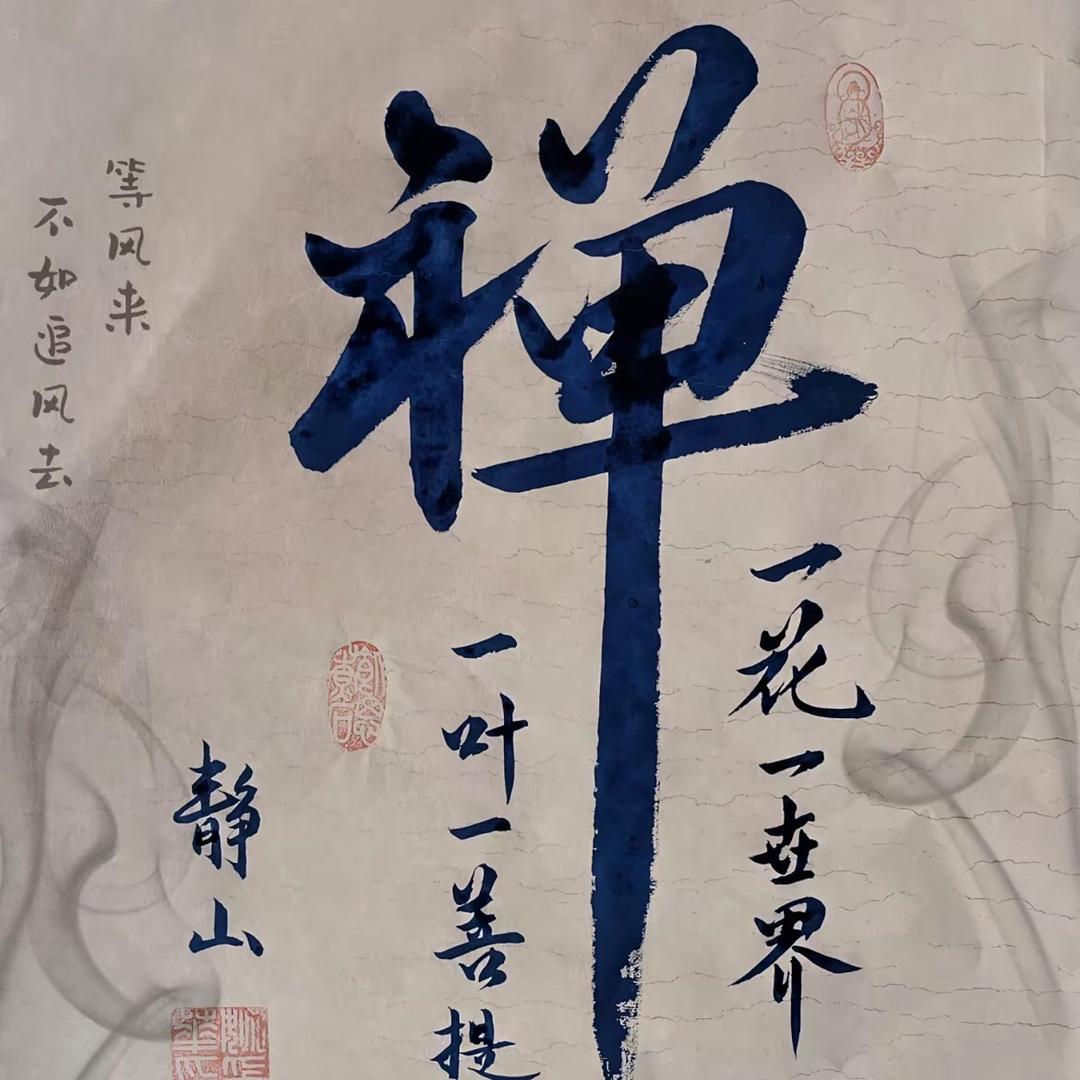 禅
一花一世界
一叶一善提
静山
等风来
不如追风去